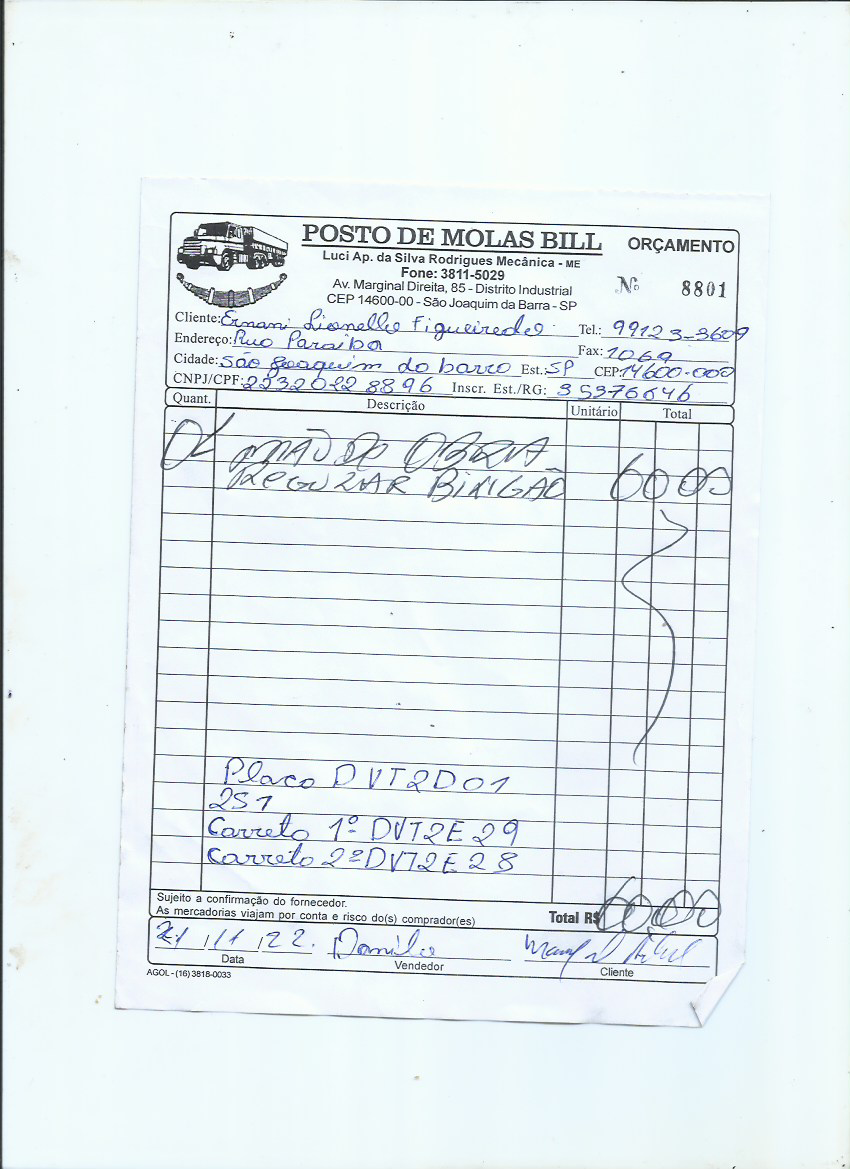 POSTO DE MOLAS BILL
ORÇAMENTO
Luci Ap. da Silva Rodrigues Mecânica - ME
Fone: 3811-5029
Av. Marginal Direita, 85 - Distrito Industrial
CEP 14600-00 - São Joaquim da Barra - SP
Nº 8801
Cliente: Ernani Lionello Figueiredo Tel.: 99123-3609
Endereço: Rua Paraiba Fax: 1069
Cidade: São Joaquim da barra Est. SP CEP: 14600-000
CNPJ/CPF: 22320228896 Inscr. Est./RG: 35376646
Quant. Descrição Unitário Total
MÃO DO OBRA
REGULAR 60 00
Placa DVT2D01
251
Carreta 1º DVT2E29
Carreta 2º DVT2E28
Sujeito a confirmação do fornecedor.
As mercadorias viajam por conta e risco do(s) comprador(es)
Total R$ 60 00
21/11/22. Danilo
Data Vendedor Cliente
AGOL - (16) 3818-0033